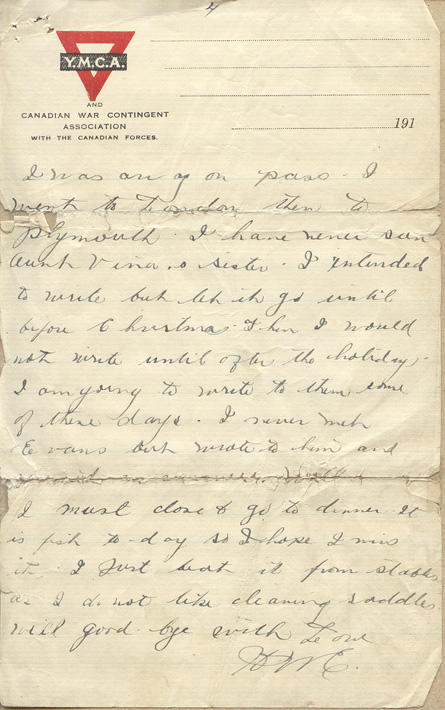 4
Y.M.C.A.
AND
CANADIAN WAR CONTINGENT
ASSOCIATION
WITH THE CANADIAN FORCES.
191
I was away on pass. I
went to London then to
Plymouth. I have never seen
Aunt Vina's sister. I intended
to write but let it go until
before Christmas. Then I would
not write until after the holiday.
I am going to write to them some
of these days. I never met
Evans but wrote to him and
Well
I must close & go to dinner It
is fish to day so I hope I miss
it. I Just beat it from stables
as I do not like cleaning saddles
well good bye with Love